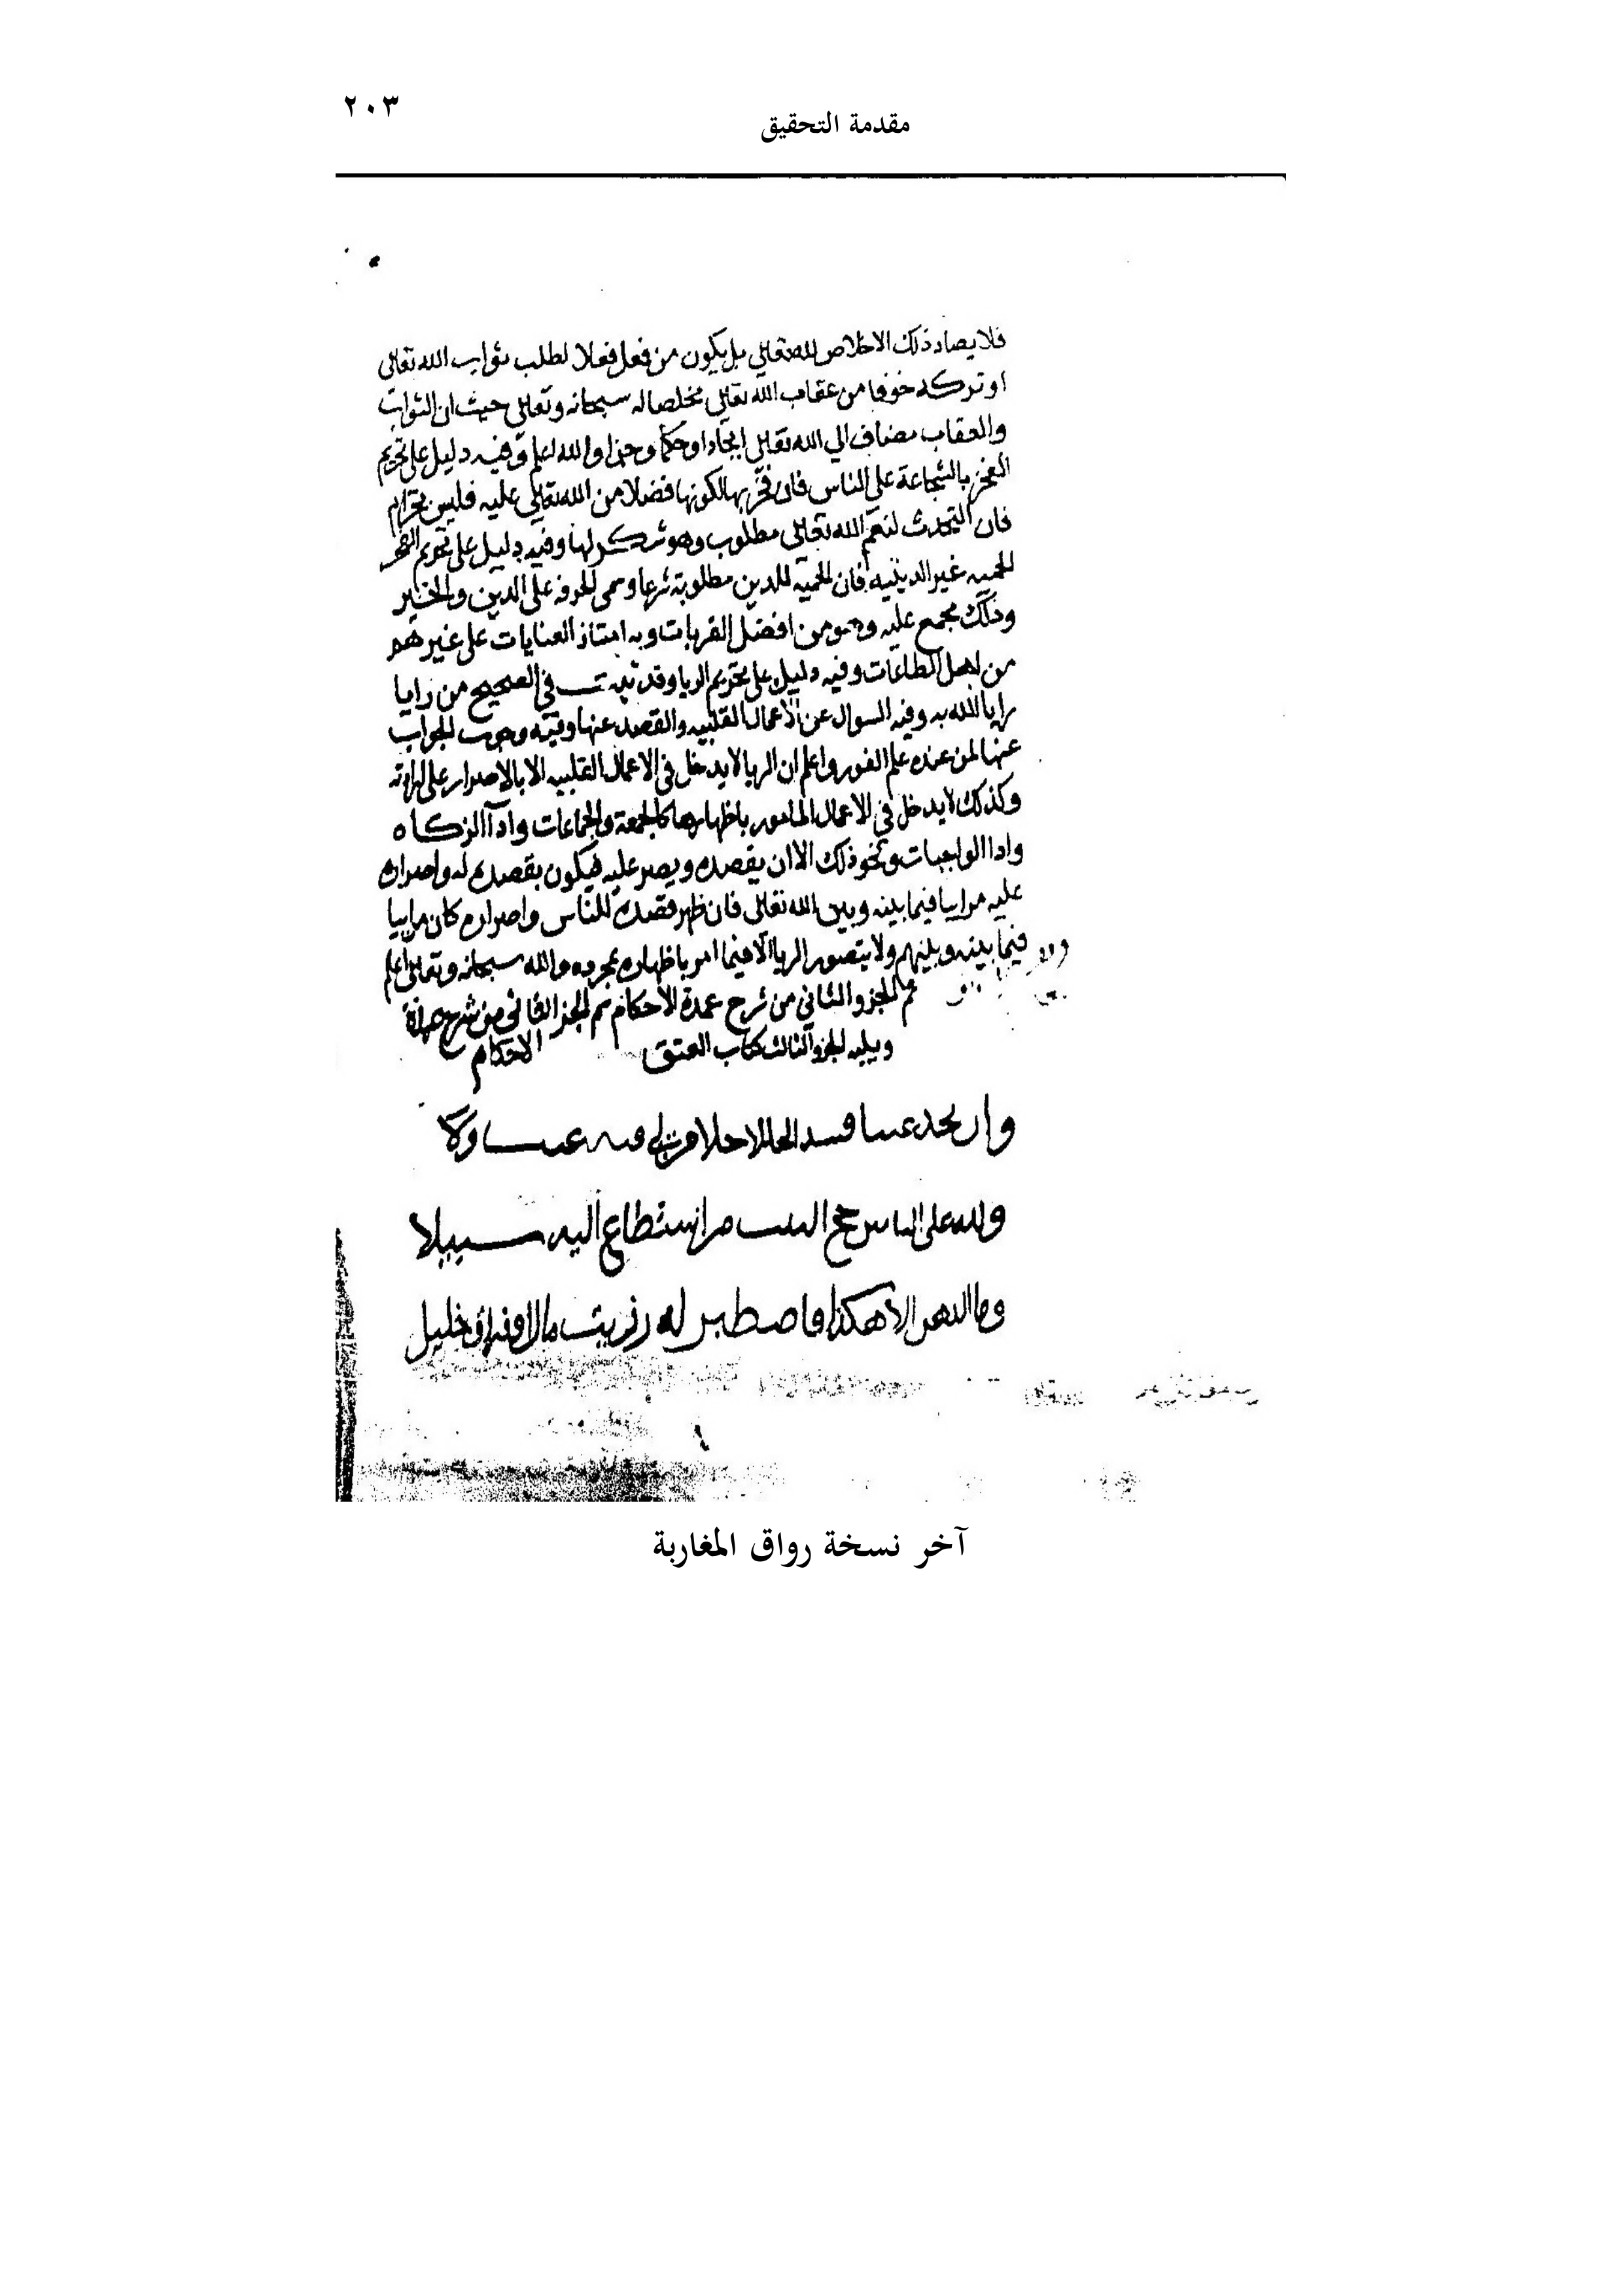 ٢٠٣
مقدمة التحقيق
فلا يضاد ذلك الاخلاص لله تعالى بل يكون من فعل فعلا لطلب ثواب الله تعالى
او تركه خوفا من عقاب الله تعالى مخلصا له سبحانه وتعالى حيث ان الثواب
والعقاب مضاف الي الله تعالى ايجادا وحكما والله اعلم وفيه دليل على تحريم
الفخر بالشجاعة على الناس فان فخر بها لكونها فضلا من الله تعالى عليه فليس بحرام
فان التحدث لنعم الله تعالى مطلوب وهو شكر لها وفيه دليل على تحريم
الحميه غير الدينيه فان الحمية للدين مطلوبة شرعا وهى على الدين
وذلك مجمع عليه وهو من افضل القربات وبه امتاز على غيرهم
من اهل الطاعات وفيه دليل على تحريم الريا وقد ثبت في الصحيح من رايا
رايا الله به وفيه السوال عن الاعمال القلبيه والقصد عنها وفيه وجوب الجواب
عنها لمن عنده علم الفور واعلم ان الريا لا يدخل في الاعمال القلبيه الا بالاصرار على
وكذلك لا يدخل في الاعمال المامور باظهارها كالجمعة والجماعات واداآ الزكاه
وادا الواجبات ونحو ذلك الا ان يقصده ويصر عليه فيكون بقصده له واصراره
عليه مراييا فيما بينه وبين الله تعالى فان ظهر قصده للناس واصراره كان مراييا
فيما بينه وبينهم ولا يتصور الريا الا فيما امر باظهاره بمجرده والله سبحانه وتعالى اعلم
تم الجزو الثاني من شرح عمدة الاحكام تم الجز الثاني من شرح عمدة
ويليه الجزو الثالث كتاب العتق
الاحكام
وان تجد عيبا فسد الخللا جل من لا فيه عيب وعلا
ولله على الناس حج البيت من استطاع اليه سبيلا
وما الدهر الا هكذا فاصطبر له رزية مال او فراق خليل
آخر نسخة رواق المغاربة